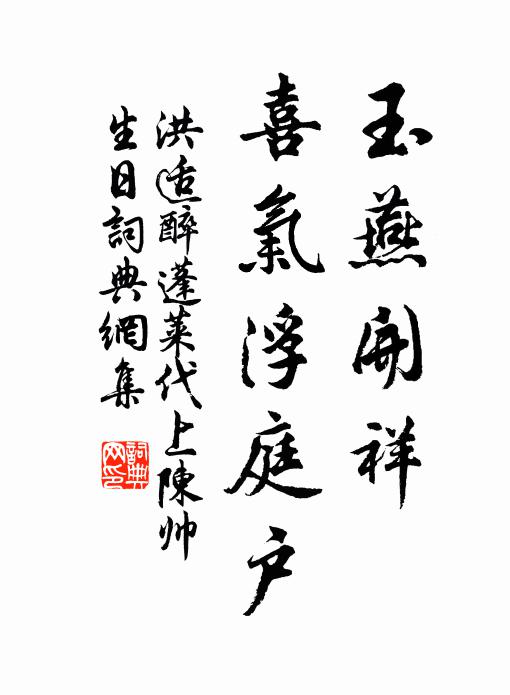 玉燕開祥
喜氣浮庭户
洪适醉蓬萊代上陳帅
生日詞典網集
詞典网印